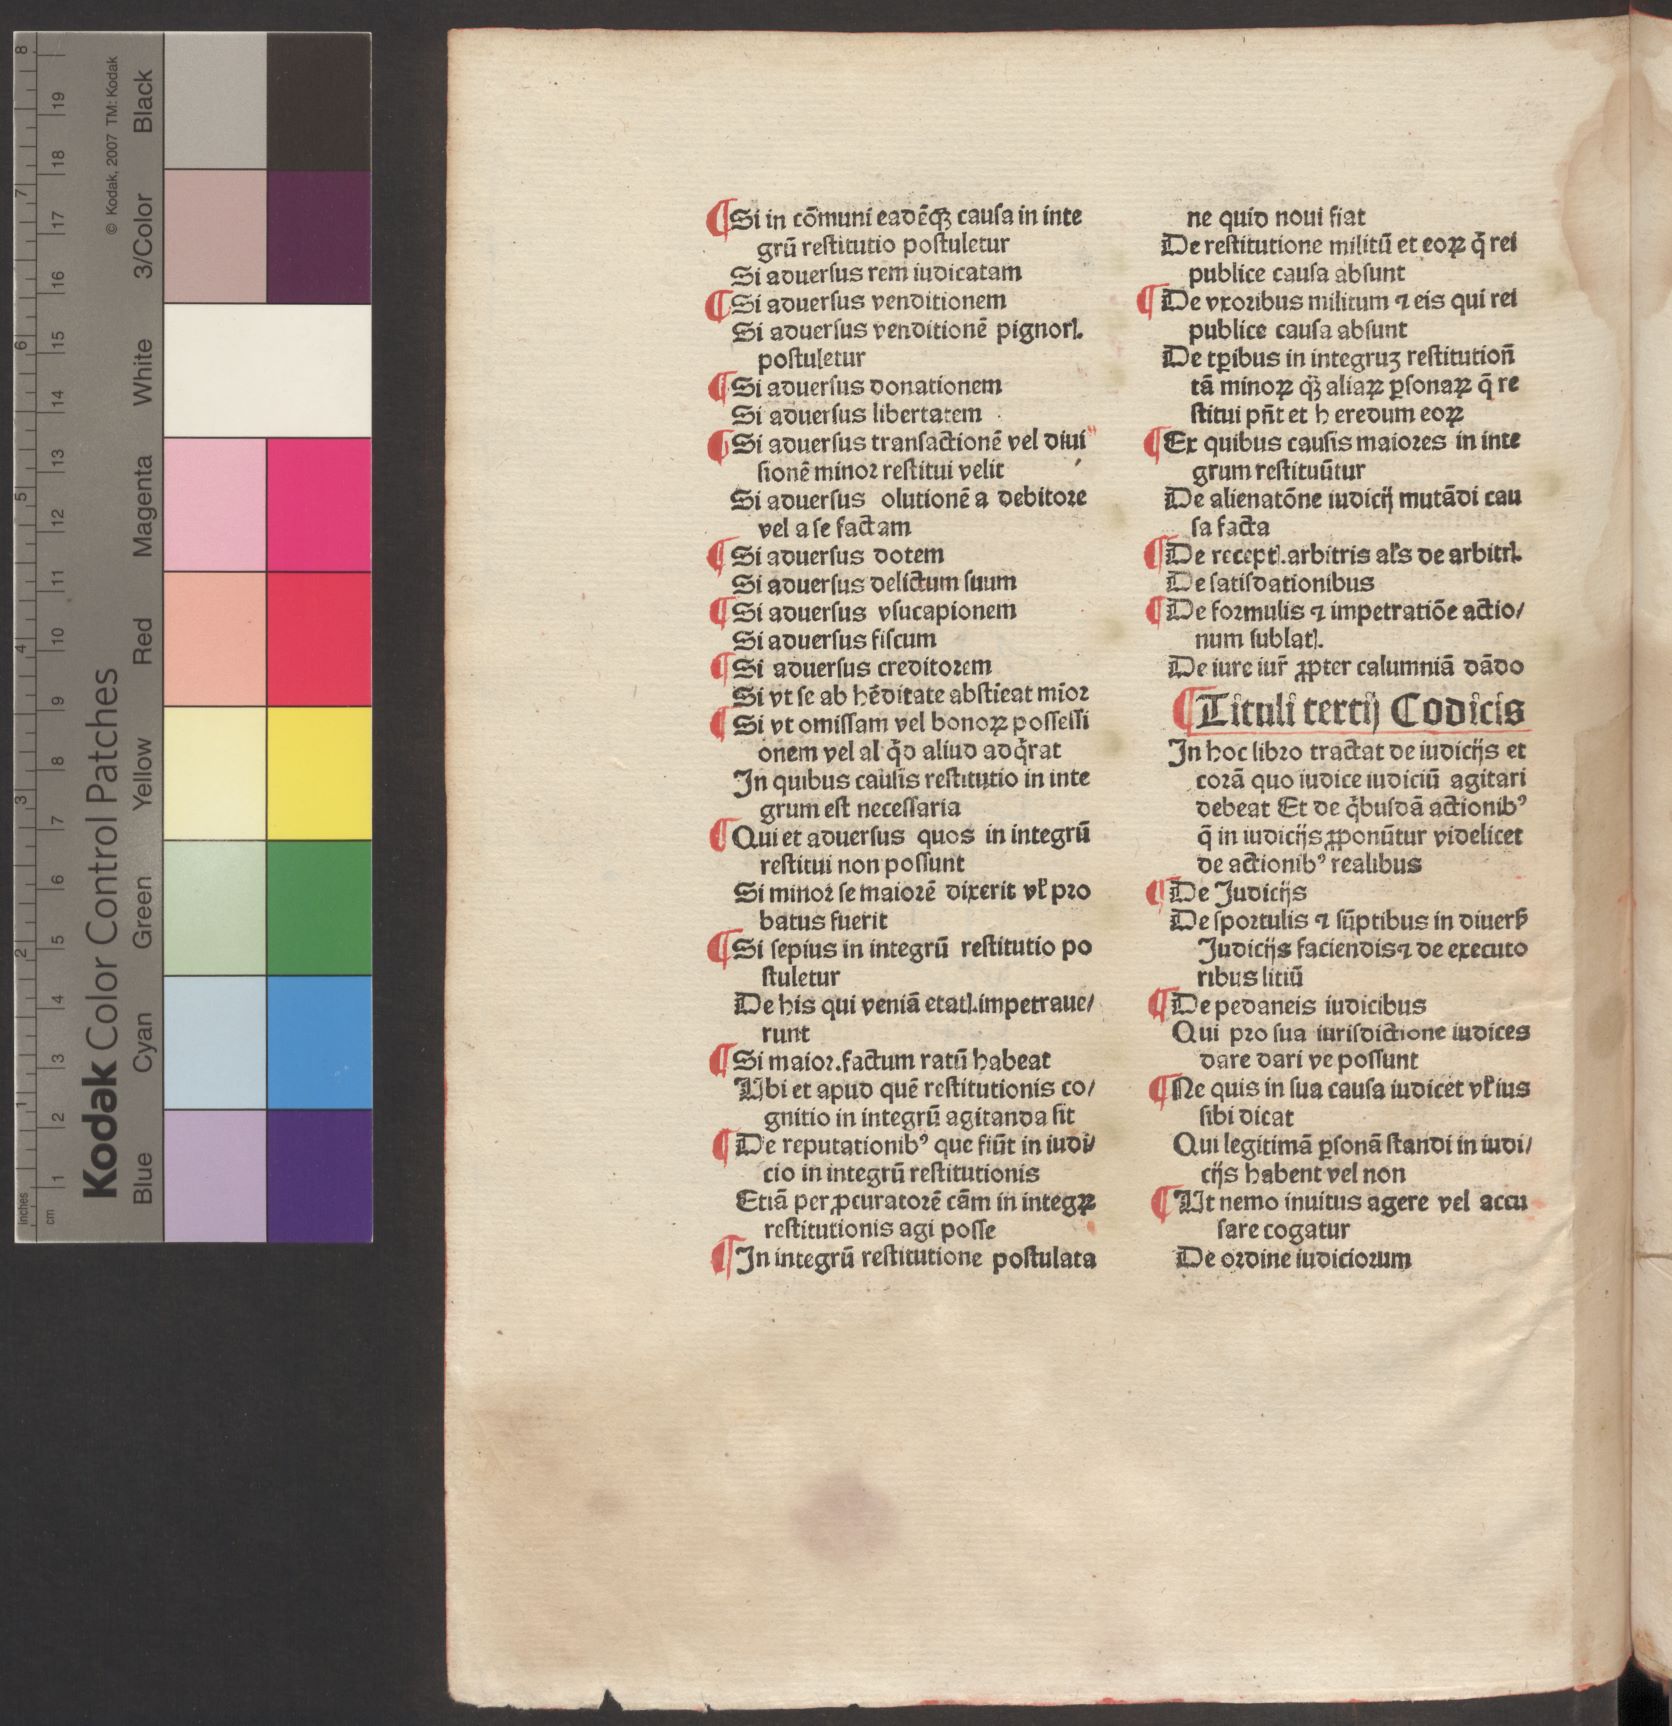 ¶Si in cōmuni eadēqꝫ causa in inte
grū restitutio postuletur
Si aduersus rem iudicatam
¶Si aduersus venditionem
Si aduersus venditionē pignorꝭ.
postuletur
¶Si aduersus donationem
Si aduersus libertatem
¶Si aduersus transactionē vel diui
sionē minor restitui velit
Si aduersus olutionē a debitore
vel a se factam
¶Si aduersus dotem
Si aduersus delictum suum
¶Si aduersus vsucapionem
Si aduersus fiscum
¶Si aduersus creditorem
Si vt se ab hēditate abstieat mior
¶Si vt omissam vel bonoꝝ possessi
onem vel al q̇d aliud adq̇rat
In quibus causis restitutio in inte
grum est necessaria
¶Qui et aduersus quos in integrū
restitui non possunt
Si minor se maiorē dixerit vl̓ pro
batus fuerit
¶Si sepius in integrū restitutio po
stuletur
De his qui veniā etatꝭ.impetraue/
runt
¶Si maior.factum ratū habeat
Ubi et apud quē restitutionis co/
gnitio in integrū agitanda sit
¶De reputationibꝰ que fiūt in iudi/
cio in integrū restitutionis
Etiā per ꝓcuratorē cām in integꝝ
restitutionis agi posse
¶In integrū restitutione postulata
ne quid noui fiat
De restitutione militū et eoꝝ q̄ rei
publice causa absunt
¶De vxoribus militum ⁊ eis qui rei
publice causa absunt
De tꝑibus in integruꝫ restitutioñ
tā minoꝝ qꝫ̄ aliaꝝ ꝑsonaꝝ q̄ re
stitui pn̄t et h eredum eoꝝ
¶Ex quibus causis maiores in inte
grum restituūtur
De alienatōne iudicij mutādi cau
sa facta
¶De receptꝭ.arbitris al̓s de arbitrꝭ.
De satisdationibus
¶De formulis ⁊ impetratiōe actio/
num sublatꝭ.
De iure iur̄ ꝓpter calumniā dādo
¶Tituli tertij Codicis
In hoc libro tractat de iudicijs et
corā quo iudice iudiciū agitari
debeat Et de q̇busdā actionibꝰ
q̄ in iudicijs ꝓponūtur videlicet
de actionibꝰ realibus
¶De Judicijs
De sportulis ⁊ sūptibus in diuersꝭ
Judicijs faciendis⁊ de executo
ribus litiū
¶De pedaneis iudicibus
Qui pro sua iurisdictione iudices
dare dari ve possunt
¶Ne quis in sua causa iudicet vl̓ ius
sibi dicat
Qui legitimā ꝑsonā standi in iudi/
cijs habent vel non
¶Ut nemo inuitus agere vel accu
sare cogatur
De ordine iudiciorum
Kodak Color Control Patches
© Kodak, 2007 TM: Kodak
Blue Cyan Green Yellow Red Magenta White 3/Color Black
inches 1 2 3 4 5 6 7 8
cm 1 2 3 4 5 6 7 8 9 10 11 12 13 14 15 16 17 18 19